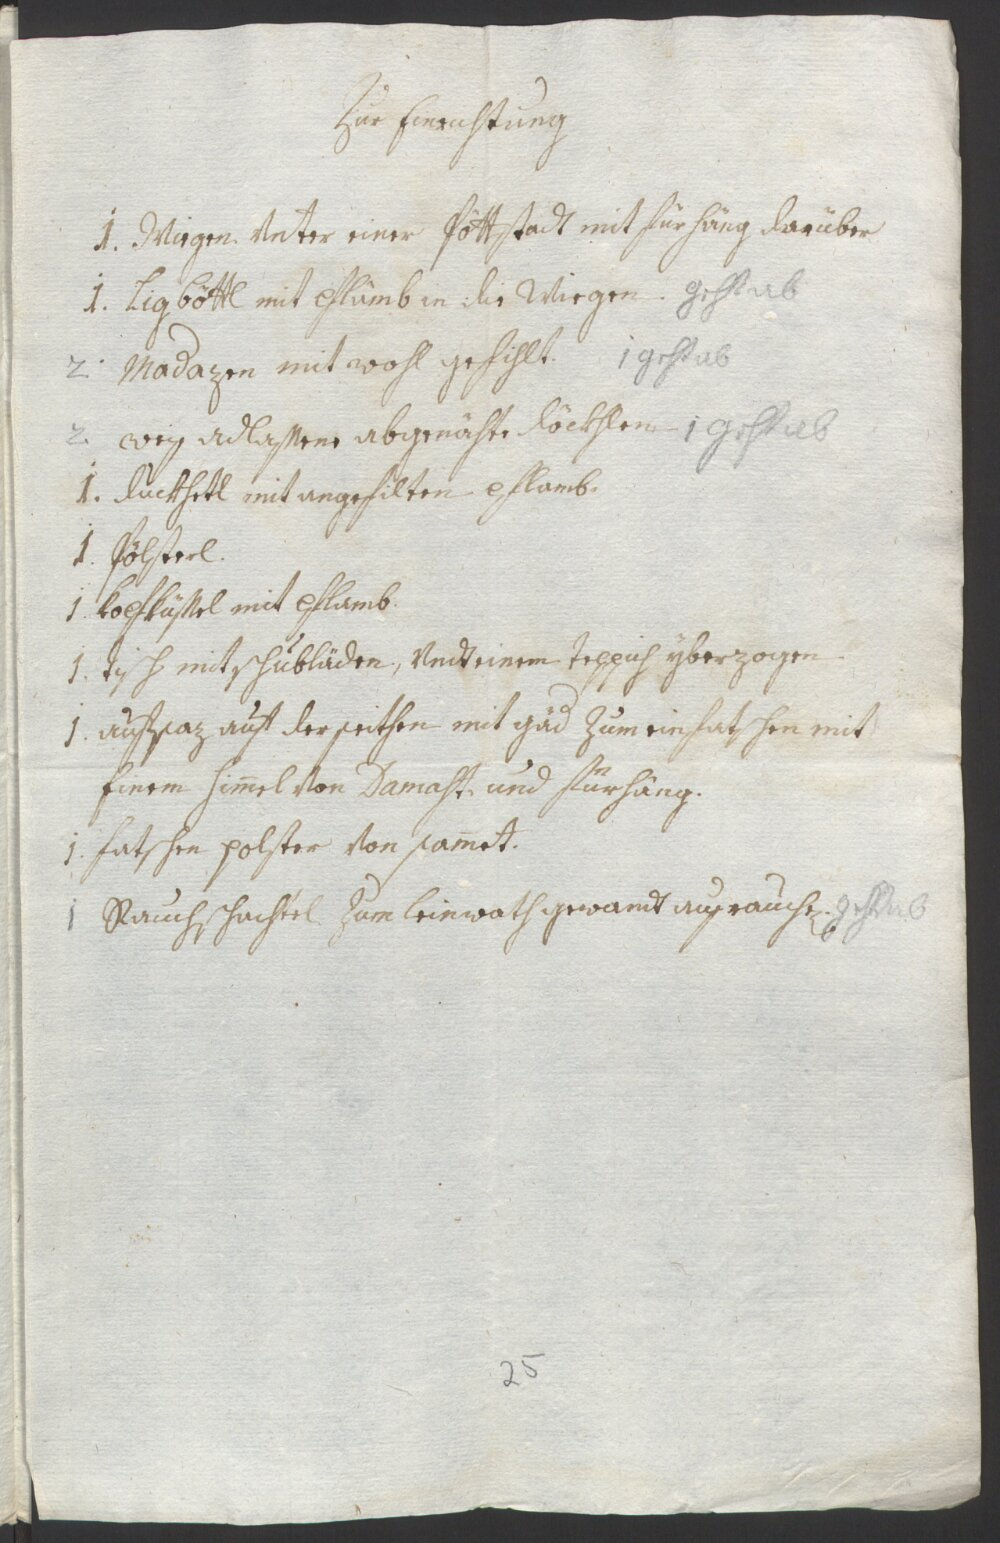 Zur Einrichtung
1. Wiegen Unter einer Pöttstadt mit fürhäng darüber
1. Ligböttl mit Pflumb in die Wiegen. geht ab
2. Madazen mit wohl gefihlt. 1 geht ab
2. weis adlassene abgenähte döckhlen 1 geht ab
1. duckhetl mit angefilten pflamb.
1. Pölsterl.
1. kopfküssel mit pflamb.
1. tisch mit schubläden, Undt einem teppich yberzogen
1. aufsaz auf der seithen mit gäd Zum einfatschen mit
Einem Him̄el Von Damast und fürhäng.
1. fatschen polster Von sam̄et.
1 Rauchschachtel Zum leinwathgewandt ausrauchen. geht ab
25